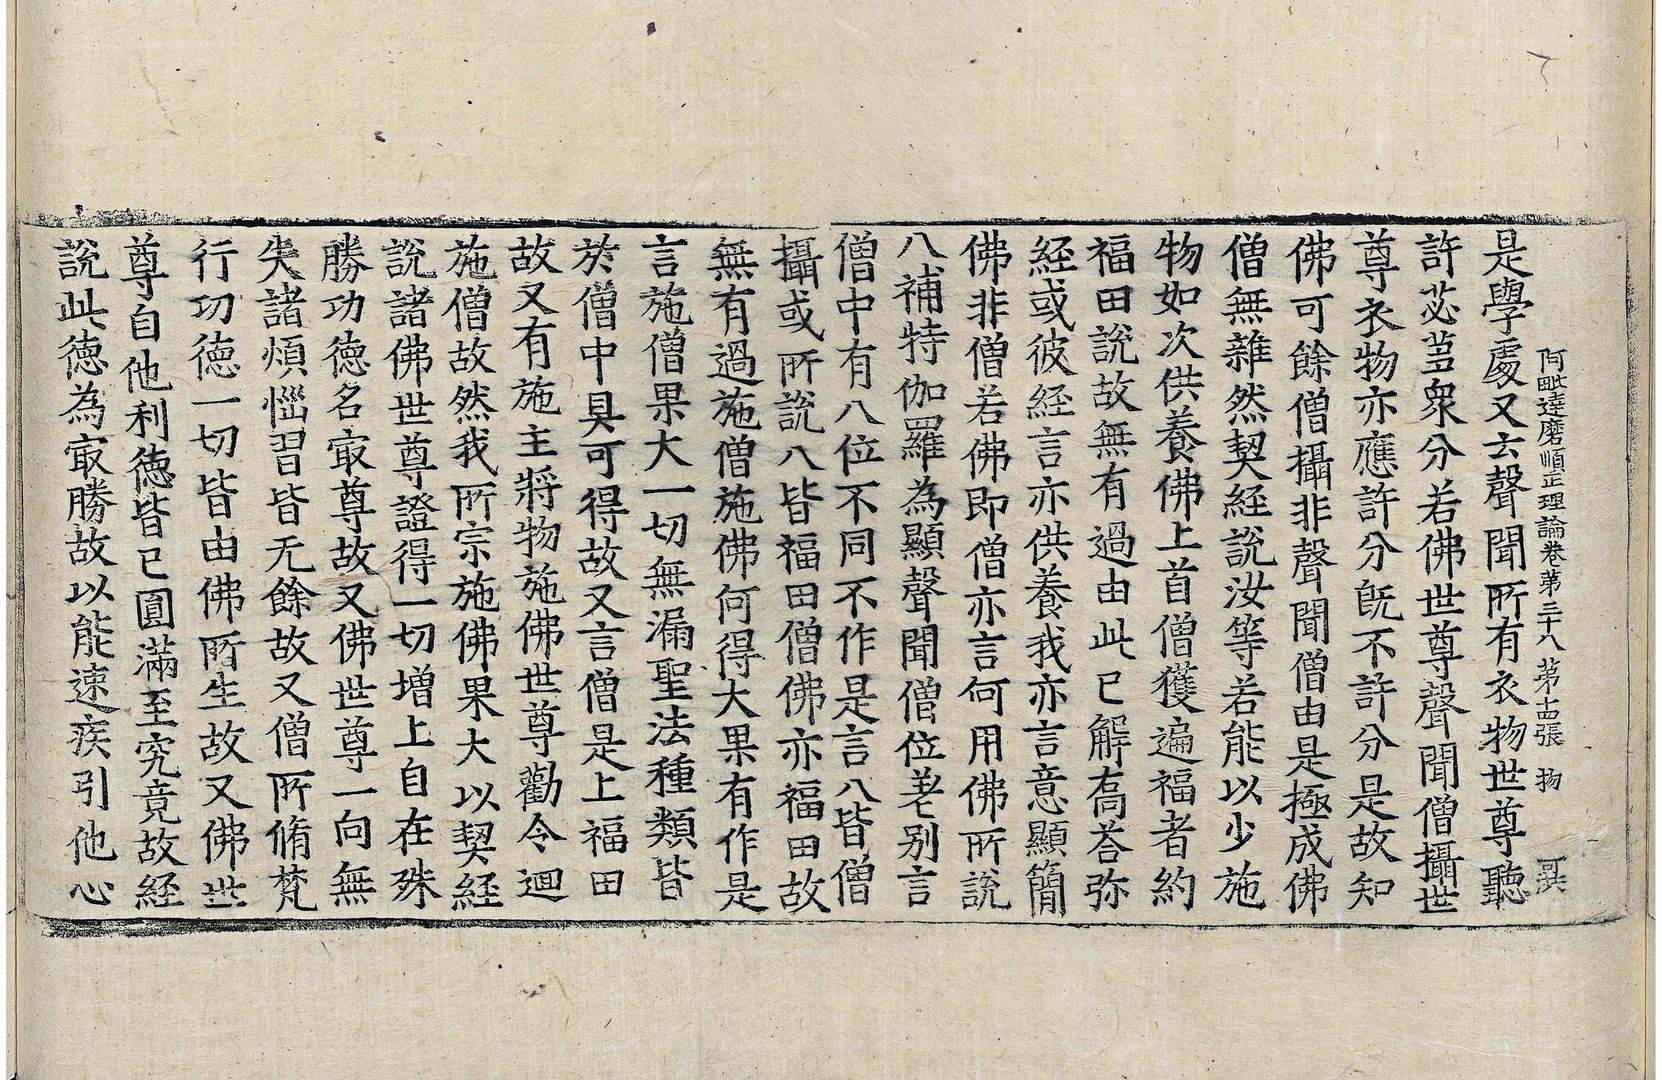 阿毗達磨順正理論卷第三十八 第十四張 物
是學處又云聲聞所有衣物世尊聽
許苾芻衆分若佛世尊聲聞僧攝世
尊衣物亦應許分旣不許分是故知
佛可餘僧攝非聲聞僧由是極成佛
僧無雜然契經說汝等若能以少施
物如次供養佛上首僧獲遍福者約
福田說故無有過由此已解喬荅弥
經或彼經言亦供養我亦言意顯簡
佛非僧若佛即僧亦言何用佛所說
八補特伽羅為顯聲聞僧位差别言
僧中有八位不同不作是言八皆僧
攝或所說八皆福田僧佛亦福田故
無有過施僧施佛何得大果有作是
言施僧果大一切無漏聖法種類皆
於僧中具可得故又言僧是上福田
故又有施主將物施佛世尊勸令迴
施僧故然我所宗施佛果大以契經
說諸佛世尊證得一切增上自在殊
勝功德名㝡尊故又佛世尊一向無
失諸煩惱習皆无餘故又僧所脩梵
行功德一切皆由佛所生故又佛世
尊自他利德皆已圓滿至究竟故経
說此德為㝡勝故以能速疾引他心